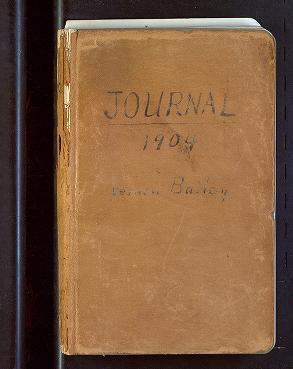 JOURNAL
1904
Vernon Bailey